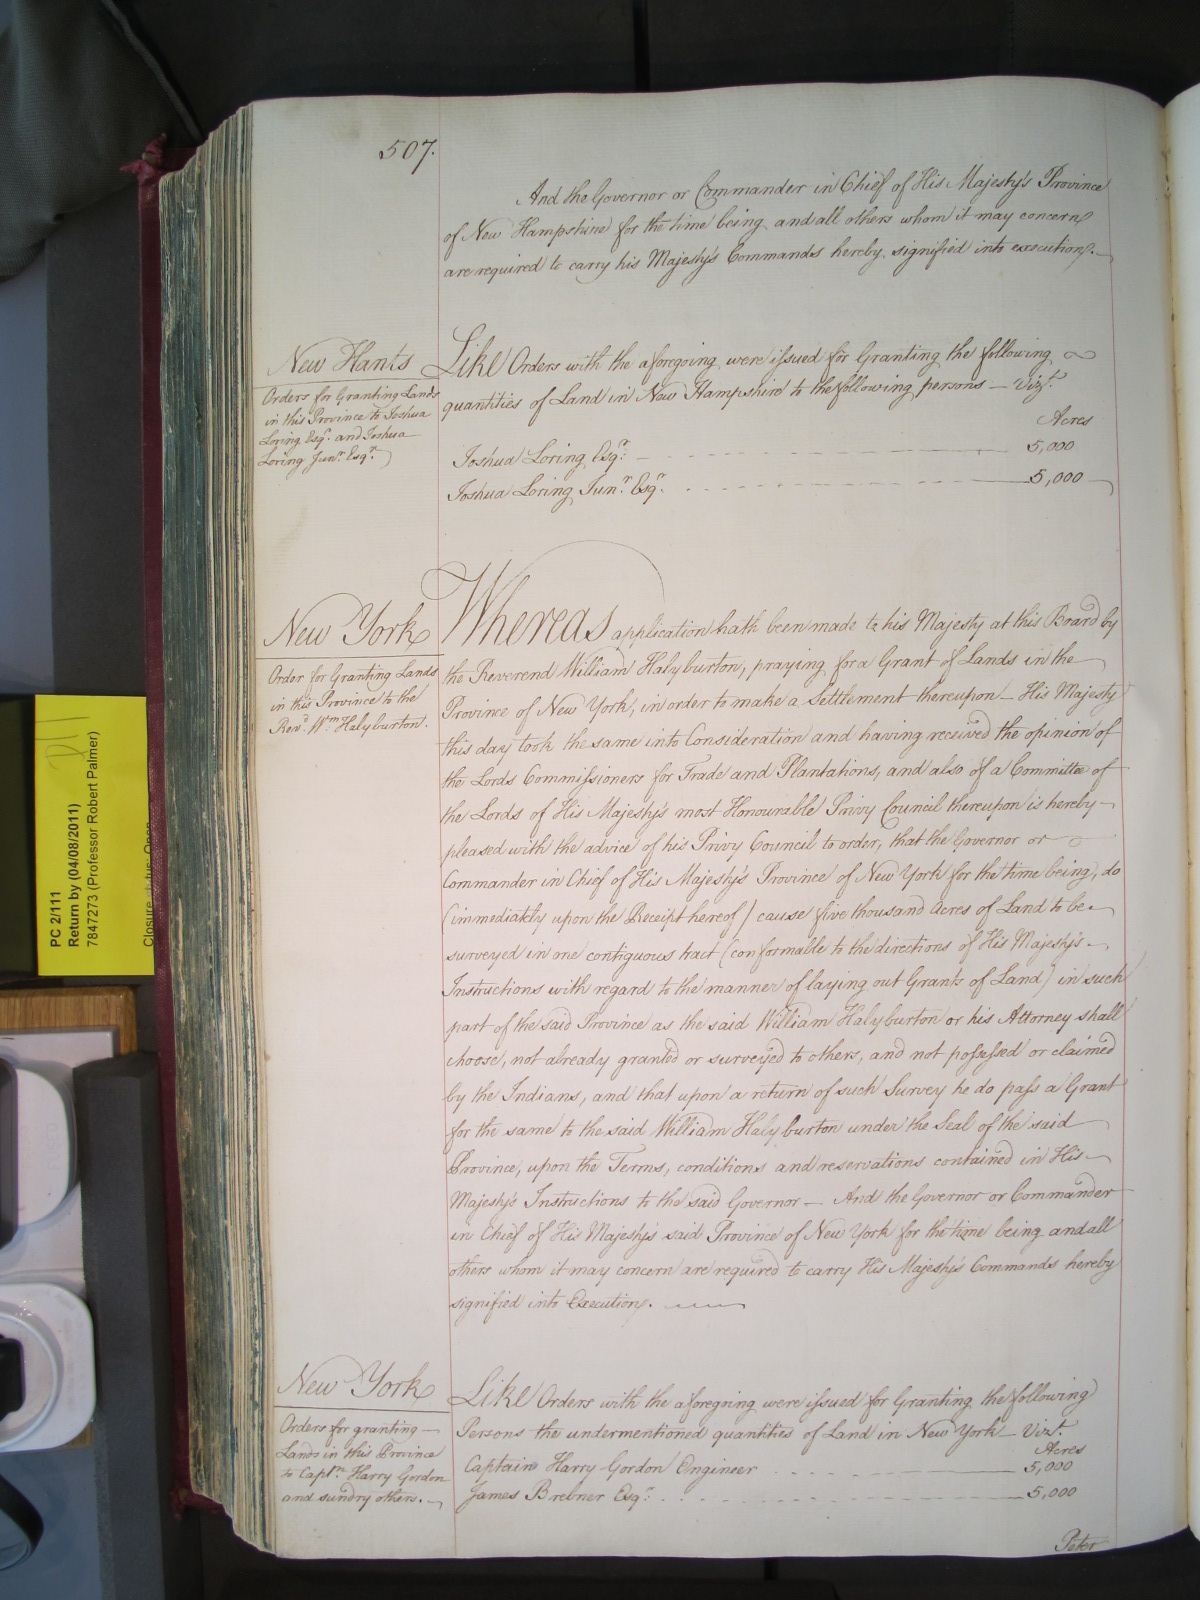 507.
And the Governor or Commander in Chief of His Majesty's Province
of New Hampshire for the time being and all others whom it may concern
are required to carry his Majesty's Commands hereby signified into execution.
New Hants
Orders for Granting Lands
in this Province to Joshua
Loring Esqr. and Joshua
Loring Junr. Esqr.
Like Orders with the aforegoing were issued for Granting the following
quantities of Land in New Hampshire to the following persons — Vizt.
Acres
Joshua Loring Esqr. 5,000
Joshua Loring Junr. Esqr. 5,000
New York
Order for Granting Lands
in this Province to the
Revd. Wm. Halyburton.
Whereas application hath been made to his Majesty at this Board by
the Reverend William Halyburton, praying for a Grant of Lands in the
Province of New York, in order to make a Settlement thereupon — His Majesty
this day took the same into Consideration and having received the opinion of
the Lords Commissioners for Trade and Plantations, and also of a Committee of
the Lords of His Majesty's most Honourable Privy Council thereupon is hereby
pleased with the advice of his Privy Council to order, that the Governor or
Commander in Chief of His Majesty's Province of New York for the time being, do
(immediately upon the Receipt hereof) cause five thousand Acres of Land to be
surveyed in one contiguous tract (conformable to the directions of His Majesty's
Instructions with regard to the manner of laying out Grants of Land) in such
part of the said Province as the said William Halyburton or his Attorney shall
choose, not already granted or surveyed to others, and not possessed or claimed
by the Indians, and that upon a return of such Survey he do pass a Grant
for the same to the said William Halyburton under the Seal of the said
Province, upon the Terms, conditions and reservations contained in His
Majesty's Instructions to the said Governor — And the Governor or Commander
in Chief of His Majestys said Province of New York for the time being and all
others whom it may concern are required to carry His Majesty's Commands hereby
signified into Execution.
New York
Orders for granting
Lands in this Province
to Captn. Harry Gordon
and sundry others.
Like Orders with the aforegoing were issued for Granting the following
Persons the undermentioned quantities of Land in New York — Vizt.
Acres
Captain Harry Gordon Engineer 5,000
James Brebner Esqr. 5,000
Peter
PC 2/111
Return by (04/08/2011)
7847273 (Professor Robert Palmer)
Closure Open